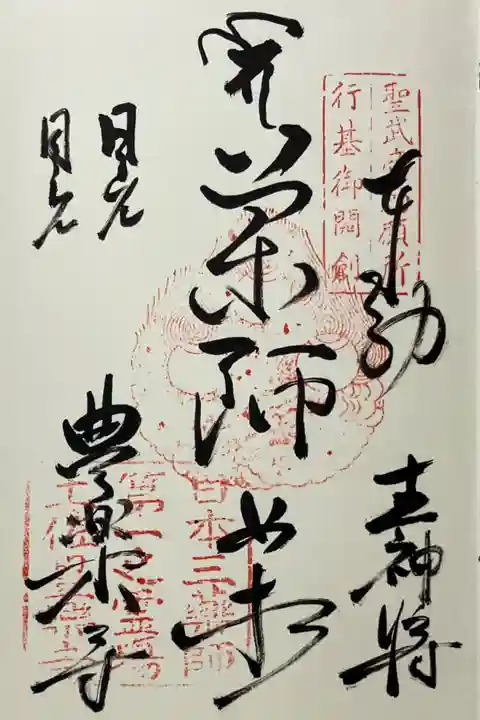 聖武天皇勅願所
行基御開創
奉
十二神将
薬師如来
日光
月光
豊楽寺
日本三薬師
第一之霊場